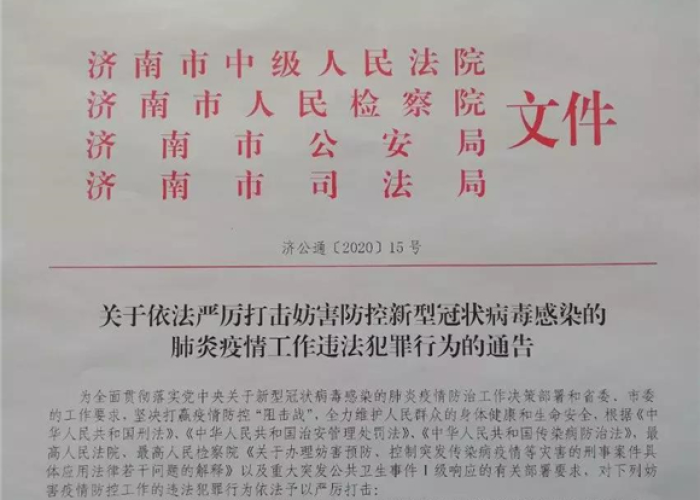 济南市中级人民法院
济南市人民检察院
济南市公安局
济南市司法局
文件
济公通〔2020〕15号
关于依法严厉打击妨害防控新型冠状病毒感染的
肺炎疫情工作违法犯罪行为的通告
为全面贯彻落实党中央关于新型冠状病毒感染的肺炎疫情防治工作决策部署和省委、市委
的工作要求，坚决打赢疫情防控“阻击战”，全力维护人民群众的身体健康和生命安全，根据《中
华人民共和国刑法》、《中华人民共和国治安管理处罚法》、《中华人民共和国传染病防治法》、最
高人民法院、最高人民检察院《关于办理妨害预防、控制突发传染病疫情等灾害的刑事案件具
体应用法律若干问题的解释》以及重大突发公共卫生事件Ⅰ级响应的有关部署要求，对下列妨
害疫情防控工作的违法犯罪行为依法予以严厉打击：